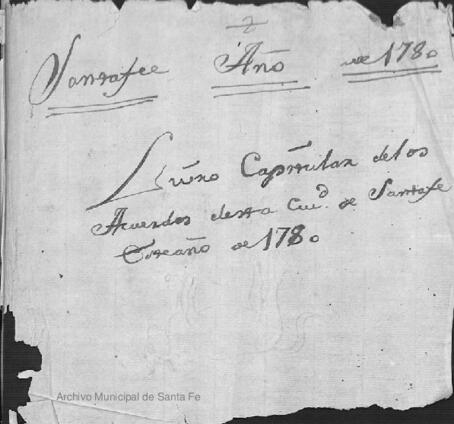 2
Santafee Año de 1780
Quꝛno Capitular de los
Acuerdos desta Ciud. de Santafe
Este año de 1780
Archivo Municipal de Santa Fe